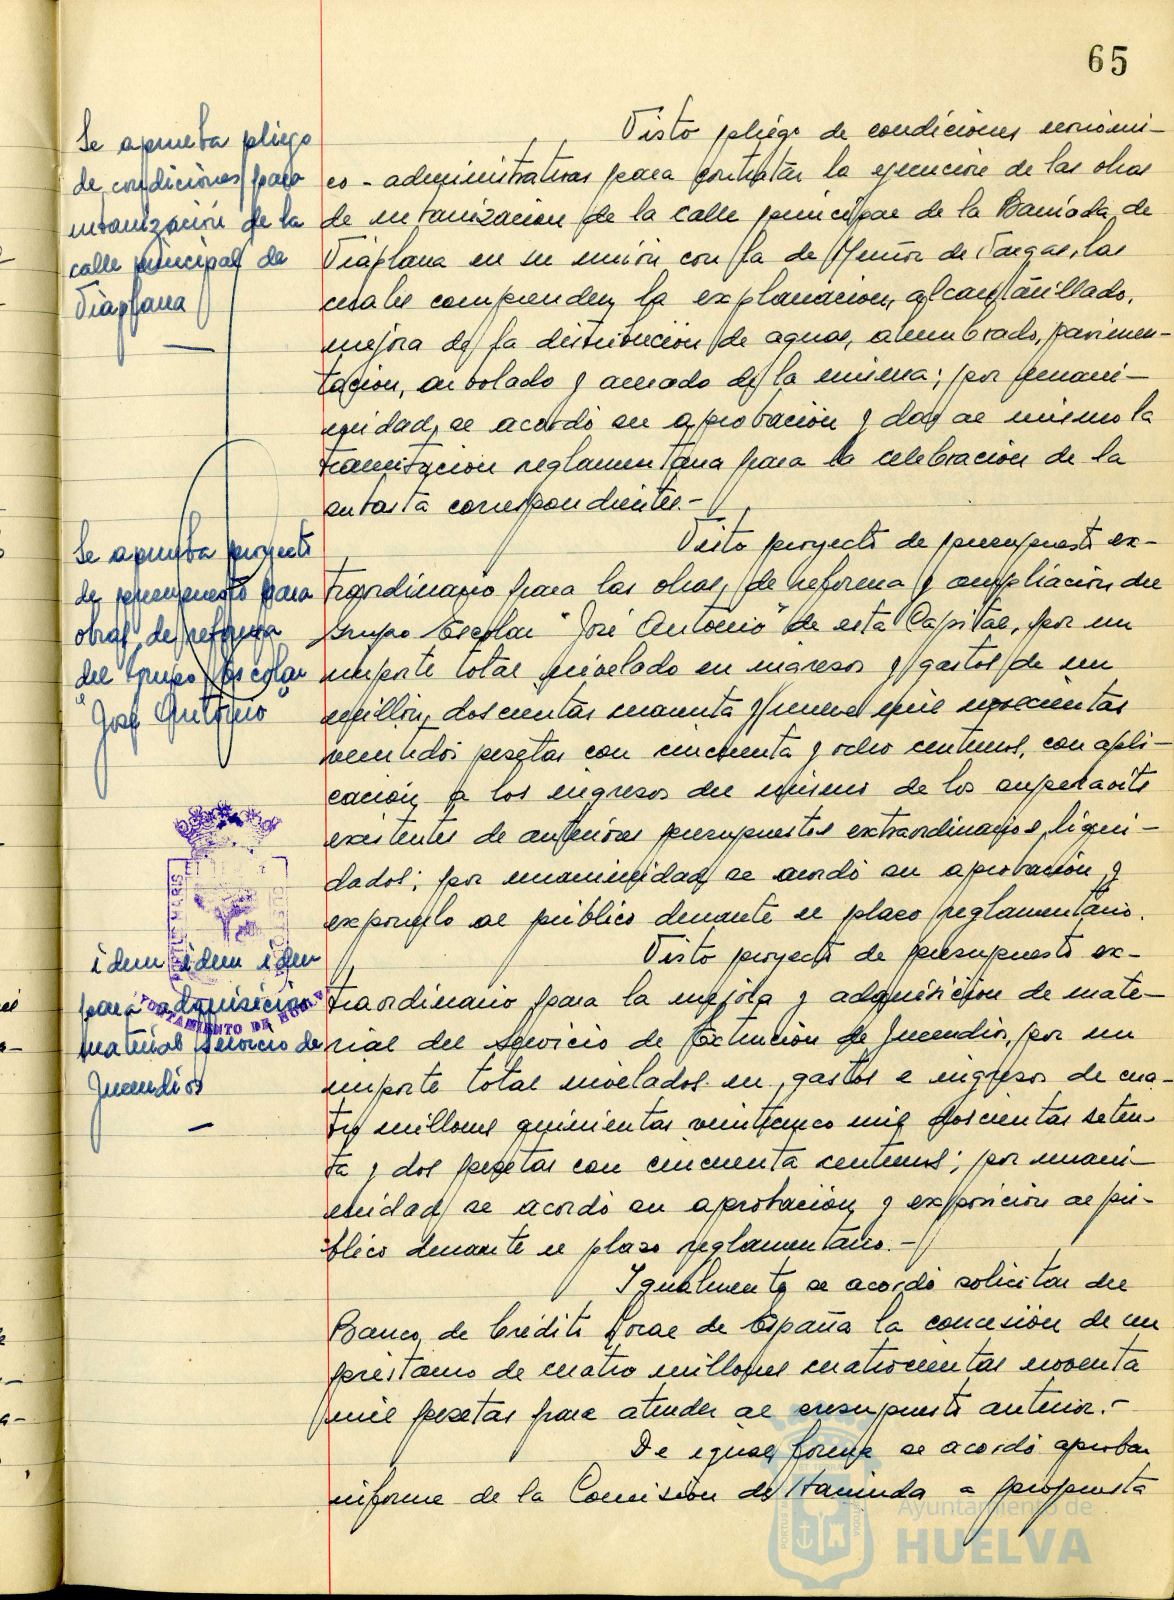 65
Se aprueba pliego
de condiciones para
urbanización de la
calle principal de
Viaplana
Visto pliego de condiciones económi-
co-administrativas para contratar la ejecución de las obras
de urbanización de la calle principal de la Barriada de
Viaplana en su unión con la de Muñoz de Vargas, las
cuales comprenden la explanación, alcantarillado,
mejora de la distribución de aguas, alumbrado, pavimen-
tación, arbolado y acerado de la misma; por unani-
midad, se acordó su aprobación y dar al mismo la
tramitación reglamentaria para la celebración de la
subasta correspondiente.-
Se aprueba proyecto
de presupuesto para
obras de reforma
del Grupo Escolar
"José Antonio"
Visto proyecto de presupuesto ex-
traordinario para las obras de reforma y ampliación del
Grupo Escolar "José Antonio" de esta Capital, por un
importe total nivelado en ingresos y gastos de un
millón, doscientas cuarenta y nueve mil novecientas
veintidós pesetas con cincuenta y ocho centimos, con apli-
cación a los ingresos del mismo de los superavits
existentes de anteriores presupuestos extraordinarios liqui-
dados; por unanimidad se acordó su aprobación y
exponerlo al público durante el plazo reglamentario.
idem idem idem
para adquisición
material servicio de
Incendios
Visto proyecto de presupuesto ex-
traordinario para la mejora y adquisición de mate-
rial del Servicio de Extinción de Incendios, por un
importe total nivelados en gastos e ingresos de cua-
tro millones quinientas veinticinco mil doscientas seten-
ta y dos pesetas con cincuenta centimos; por unani-
midad se acordó su aprobación y exposición al pú-
blico durante el plazo reglamentario.-
Igualmente se acordó solicitar del
Banco de Crédito Local de España la concesión de un
préstamo de cuatro millones cuatrocientas noventa
mil pesetas para atender al presupuesto anterior.-
De igual forma se acordó aprobar
informe de la Comisión de Hacienda a propuesta
PORTUS MARIS
AYUNTAMIENTO DE HUELVA
Ayuntamiento de
HUELVA